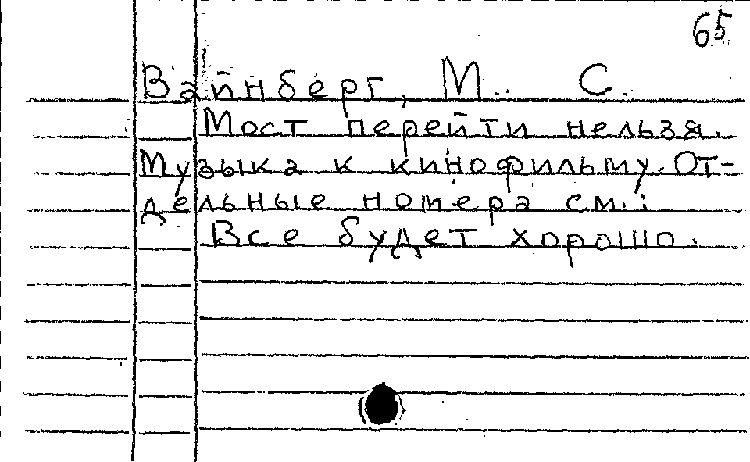 65
Вайнберг, М. С.
Мост перейти нельзя.
Музыка к кинофильму. От-
дельные номера см.:
Все будет хорошо.